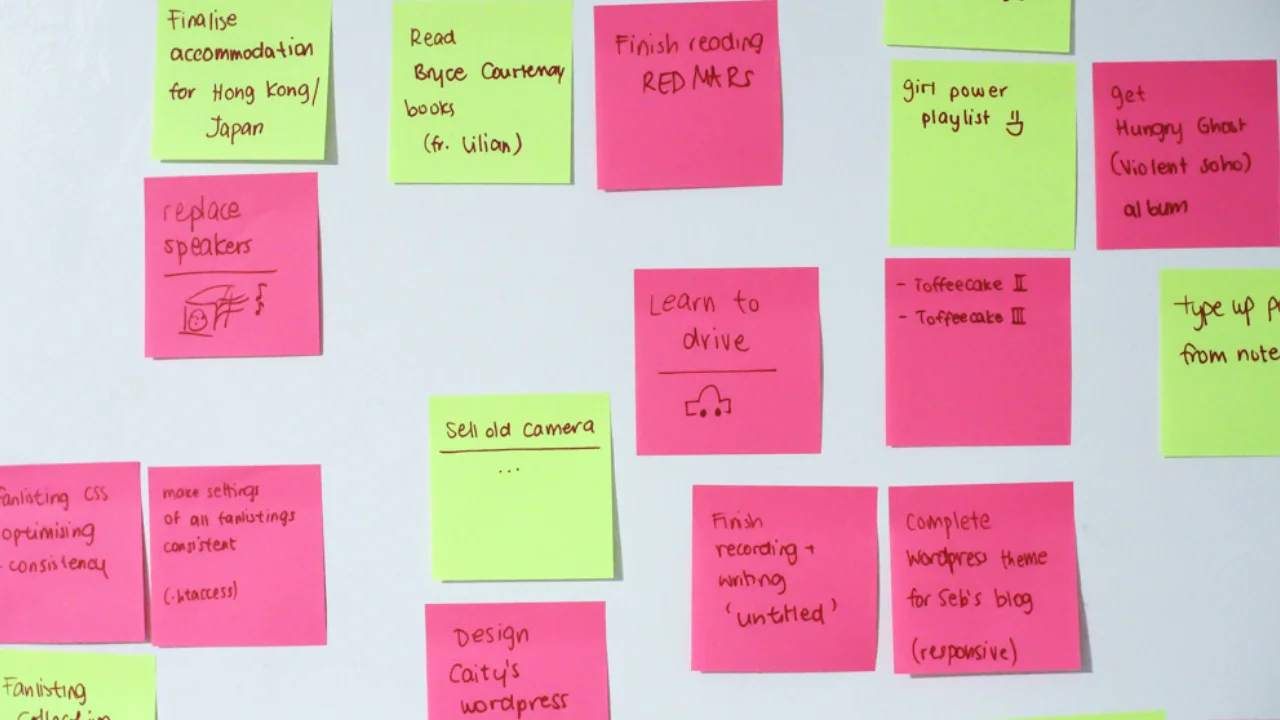 Finalise
accommodation
for Hong Kong/
Japan
Read
Bryce Courtenay
books
(fr. Lilian)
Finish reading
RED MARS
girl power
playlist
get
Hungry Ghost
(Violent Soho)
album
replace
speakers
Learn to
drive
- Toffeecake II
- Toffeecake III
type up
from note
Sell old camera
...
fanlisting CSS
optimising
- consistency
make settings
of all fanlistings
consistent
(.htaccess)
Finish
recording +
writing
'untitled'
Complete
Wordpress theme
for Seb's blog
(responsive)
Design
Caity's
wordpress
Fanlisting